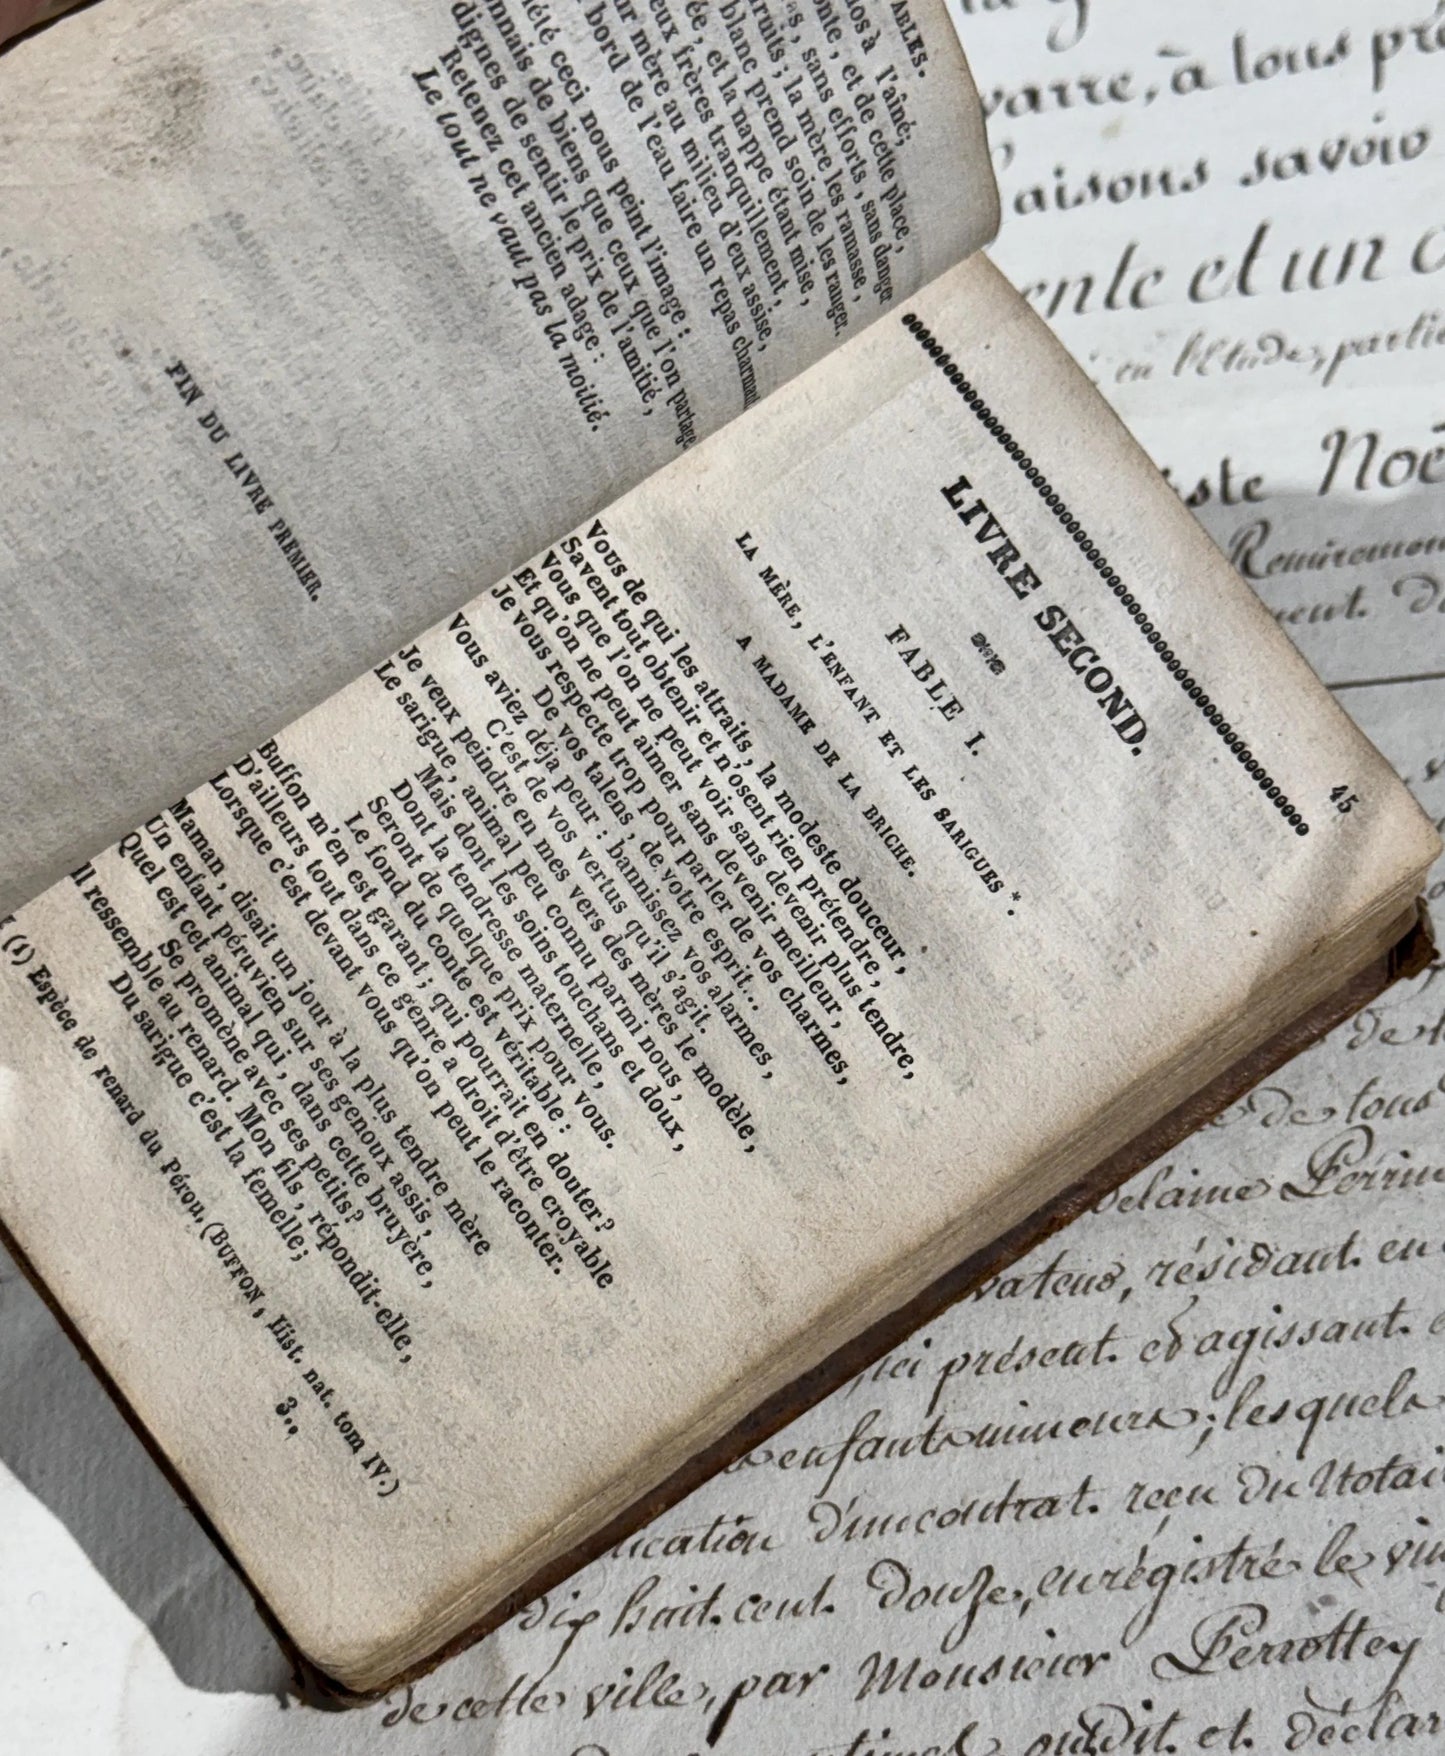 ABLES.
à l'aîné;
onte, et de cette place,
, sans efforts, sans danger
ruits; la mère les ramasse,
blanc prend soin de les ranger.
ée, et la nappe étant mise,
mère au milieu d'eux assise,
eux frères tranquillement,
bord de l'eau faire un repas charmant
ceci nous peint l'image:
onnais de biens que ceux que l'on partage
dignes de sentir le prix de l'amitié,
Retenez cet ancien adage:
Le tout ne vaut pas la moitié.
FIN DU LIVRE PREMIER.
45
LIVRE SECOND.
FABLE I.
LA MÈRE, L'ENFANT ET LES SARIGUES *.
A MADAME DE LA BRICHE.
Vous de qui les attraits, la modeste douceur,
Savent tout obtenir et n'osent rien prétendre,
Vous que l'on ne peut voir sans devenir plus tendre,
Et qu'on ne peut aimer sans devenir meilleur,
Je vous respecte trop pour parler de vos charmes,
De vos talens, de votre esprit...
Vous aviez déja peur: bannissez vos alarmes,
C'est de vos vertus qu'il s'agit.
Je veux peindre en mes vers des mères le modèle,
Le sarigue, animal peu connu parmi nous,
Mais dont les soins touchans et doux,
Dont la tendresse maternelle,
Seront de quelque prix pour vous.
Le fond du conte est véritable:
Buffon m'en est garant; qui pourrait en douter?
D'ailleurs tout dans ce genre a droit d'être croyable
Lorsque c'est devant vous qu'on peut le raconter.
Maman, disait un jour à la plus tendre mère
Un enfant péruvien sur ses genoux assis,
Quel est cet animal qui, dans cette bruyère,
Se promène avec ses petits?
Il ressemble au renard. Mon fils, répondit-elle,
Du sarigue c'est la femelle;
(1) Espèce de renard du Pérou, (BUFFON, Hist. nat. tom IV.)
3..
varre, à tous pré
aisons savoir
ente et un
en l'Etude, partie
iste Noë
Remiremon
ment. D
de tous
elaine Perrin
résidant en
ici présent et agissant
enfants mineurs; lesquels
ication d'un contrat reçu du Notai
dix huit cent douze, enrégistré le vin
de cette ville, par Monsieur Perrottey
oudit et déclar